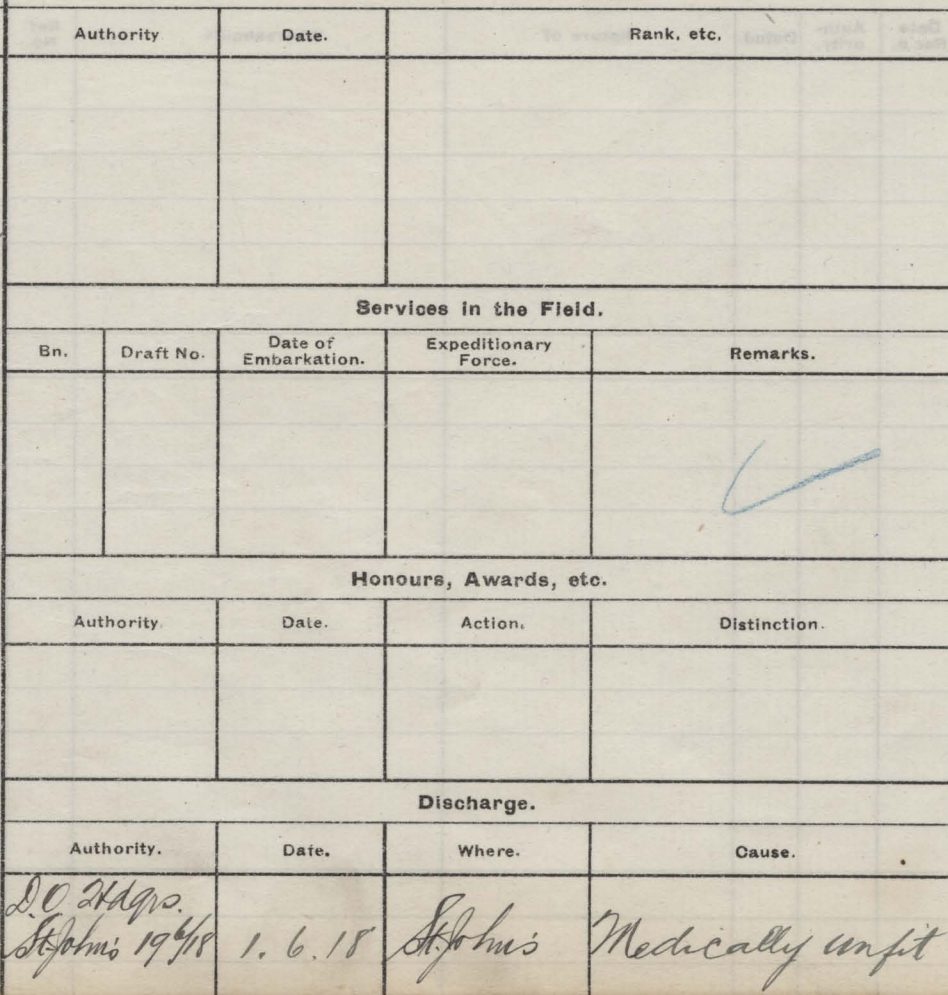 Authority Date. Rank, etc.
Services in the Field.
Bn. Draft No. Date of Embarkation. Expeditionary Force. Remarks.
Honours, Awards, etc.
Authority. Date. Action. Distinction.
Discharge.
Authority. Date. Where. Cause.
D.O. Hdqrs.
St. John's 19/6/18 1.6.18 St. John's Medically unfit